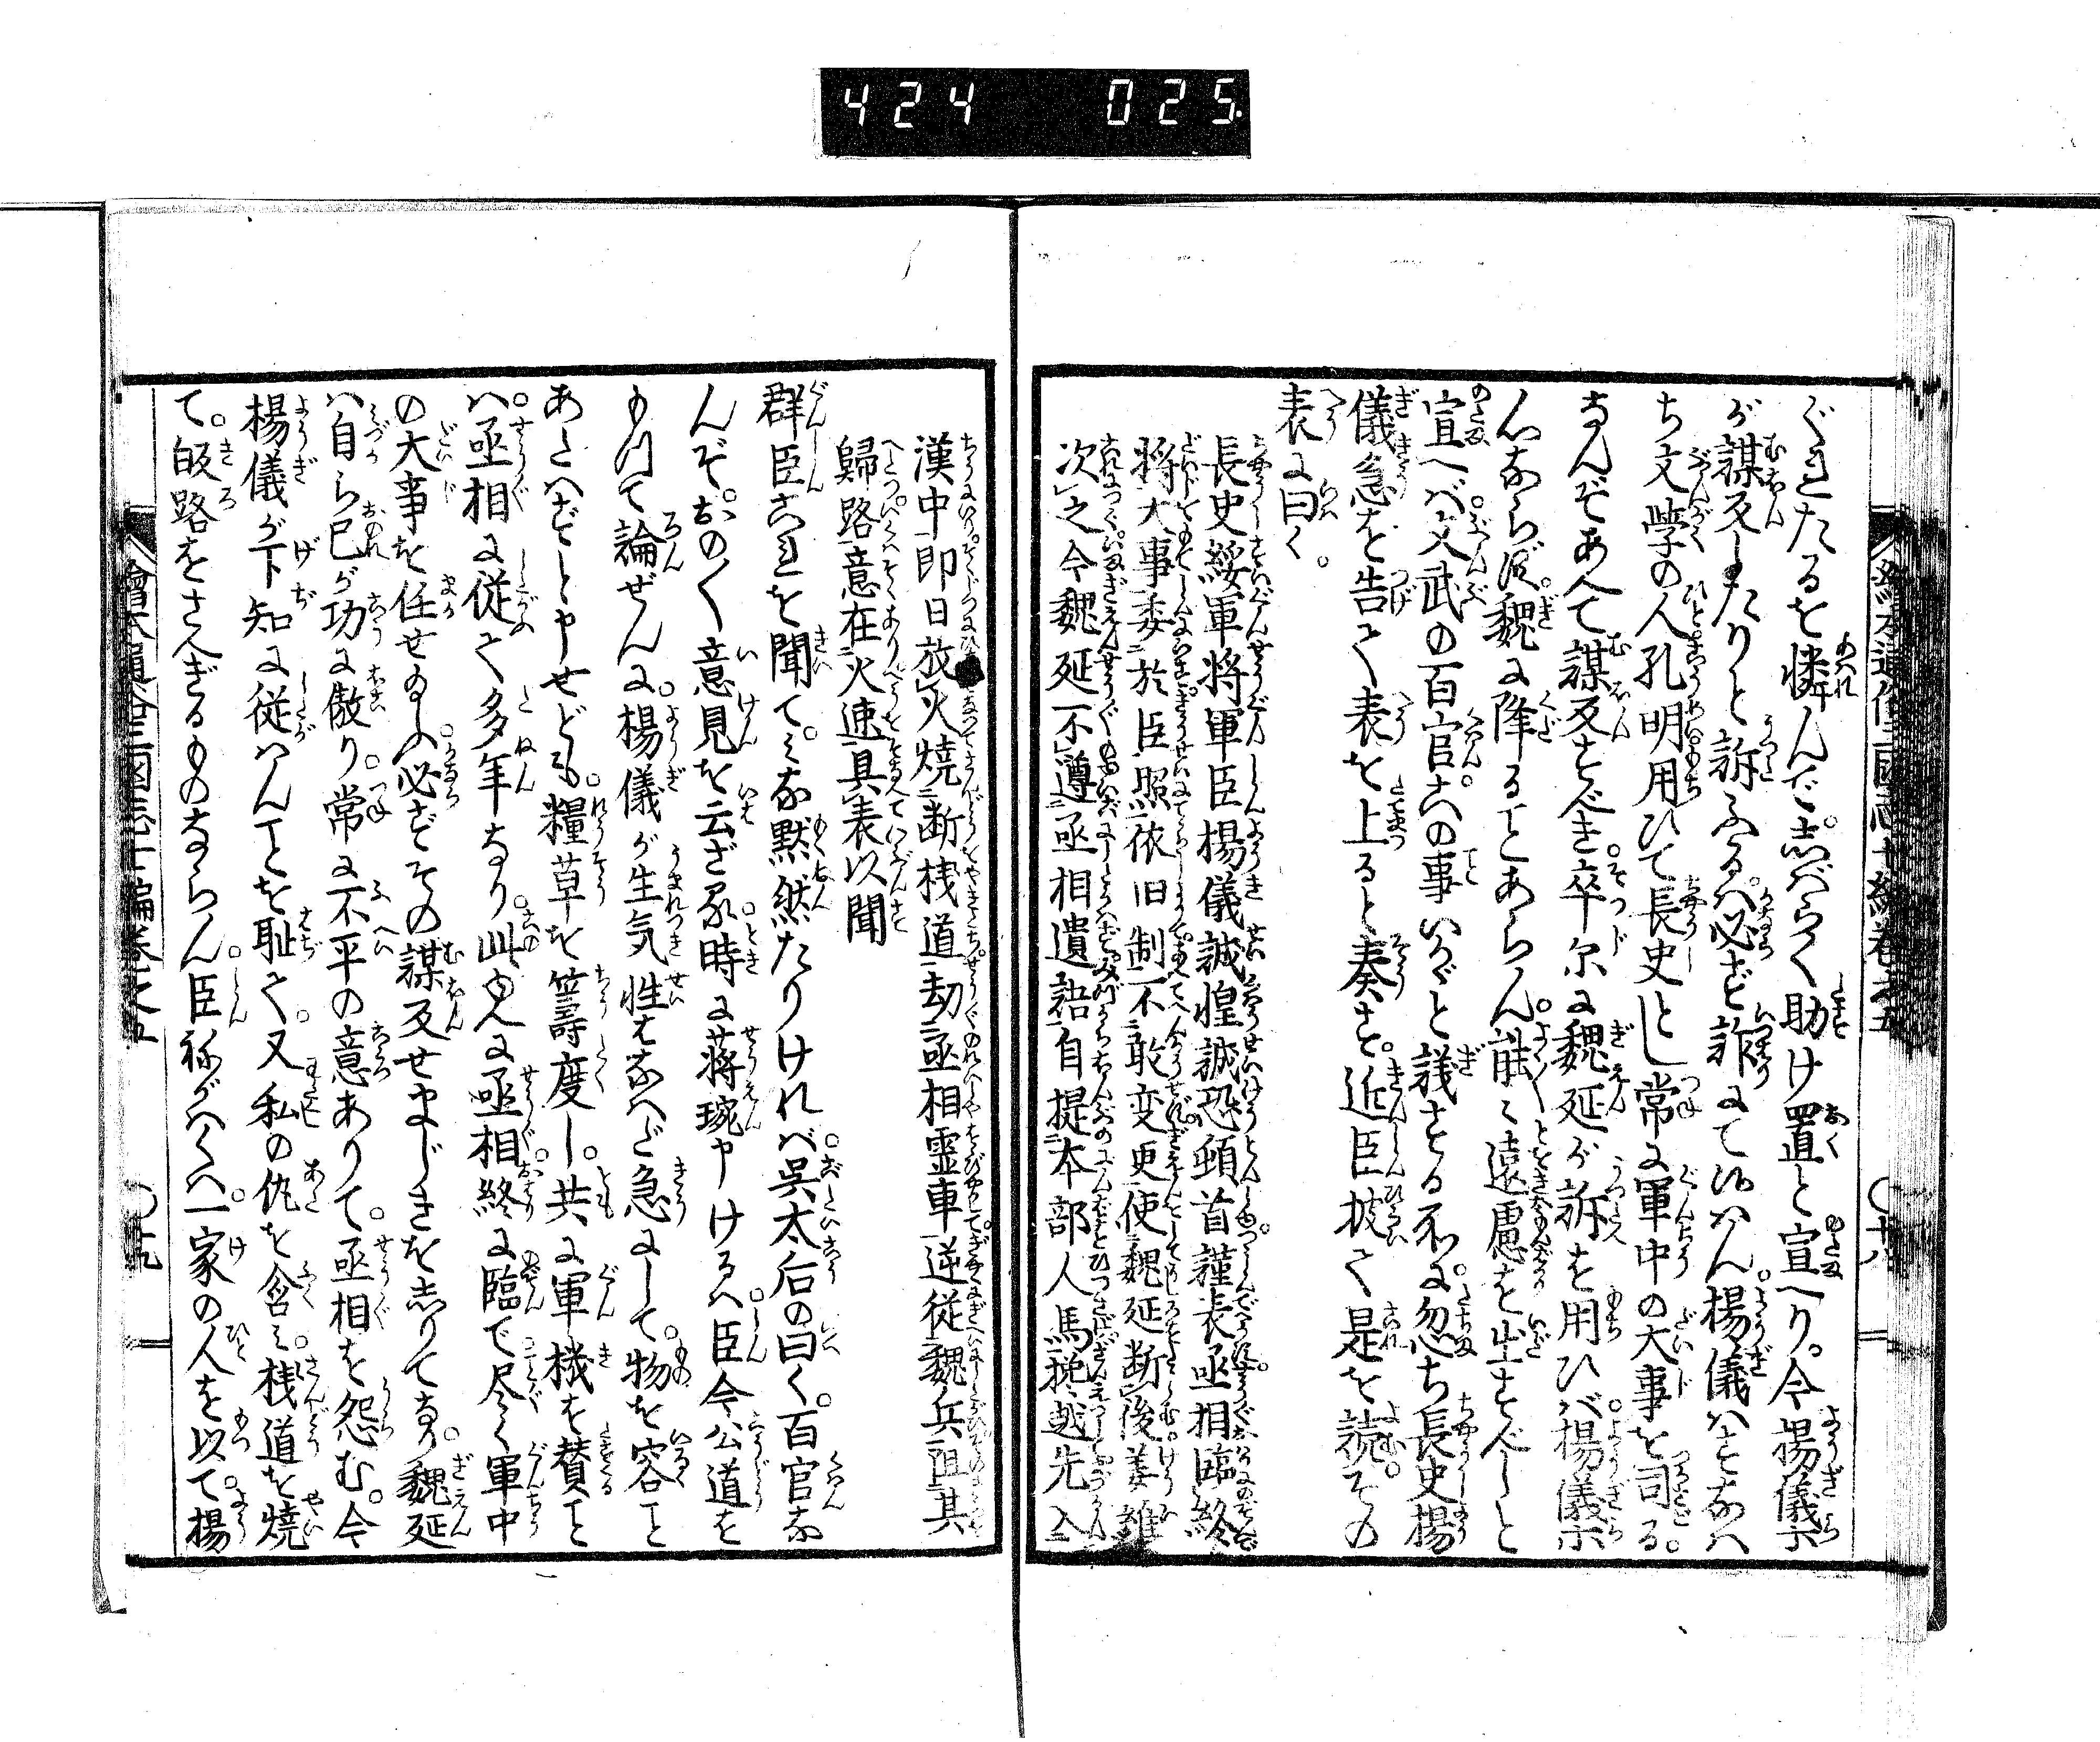 424 025
ぐれたるを憐んで。志ばらく助け置と宣へり。今楊儀ホ
が謀反したりと訴ふるハ。必ず詐にて候ハん。楊儀ハすなハ
ち文学の人。孔明用ひて長史とし。常に軍中の大事を司る。
なんぞあへて謀反すべき。卒尓に魏延が訴を用ひバ。楊儀ホ
心ならず。魏に降ることあらん。能〻遠慮を出すべしと
宣へバ。文武の百官。この事いかゞと議する所に。忽ち長史楊
儀急を告て表を上ると奏す。近臣披て是を読。その
表に曰く。
長史綏軍将軍臣楊儀誠惶誠恐頓首謹表丞相臨終
将大事委於臣照依旧制不敢変更使魏延断後姜維
次之今魏延不遵丞相遺語自提本部人馬搀越先入
漢中即日放火焼断桟道劫丞相霊車逆従魏兵阻其
歸路意在火速具表以聞
群臣これを聞て。ミな黙然たりけれバ。呉太后の曰く。百官な
んぞ。おの〱意見を云ざる。時に蒋琬申けるハ。臣今公道を
もつて論ぜんに。楊儀が生気性すなハど急にして。物を容こと
あたハずと申せども。糧草を籌度し。共に軍機を賛こと
ハ。丞相に従て多年なり。此ゆへに丞相終に臨で尽く軍中
の大事を任せ給ふ。必ずその謀反せまじきを志りてなり。魏延
ハ自ら己が功に傲り。常に不平の意ありて。丞相を怨む。今
楊儀が下知に従ハんことを耻て。又私の仇を含ミ。桟道を焼
て。皈路をさへぎるものならん。臣ねがハくハ。一家の人を以て。楊
繪本通俗三國志七編巻之五 〇十八
繪本通俗三國志七編巻之五 〇十九